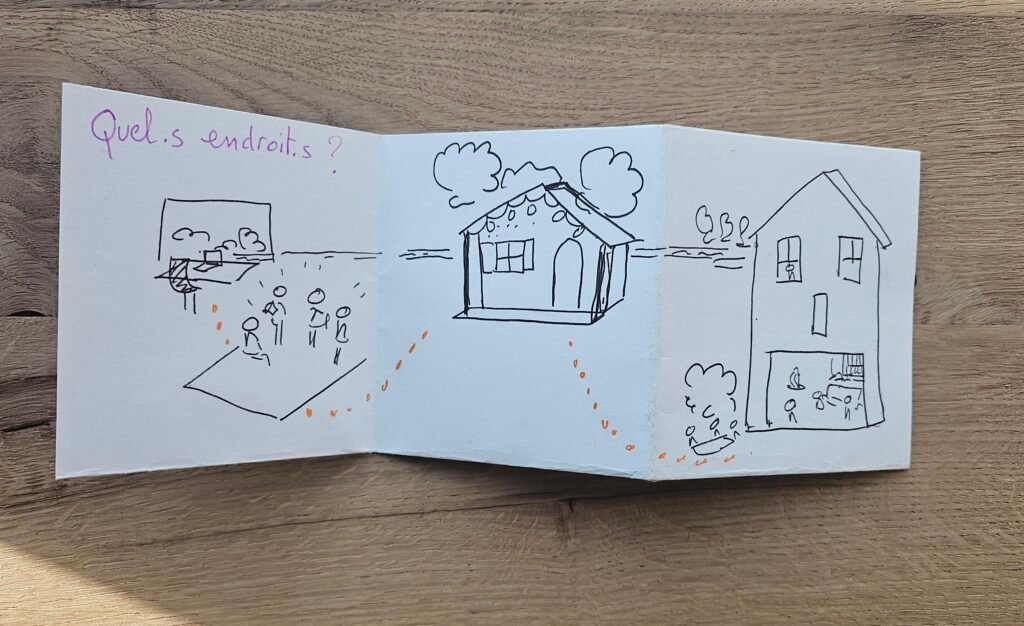 Quel.s endroit.s ?